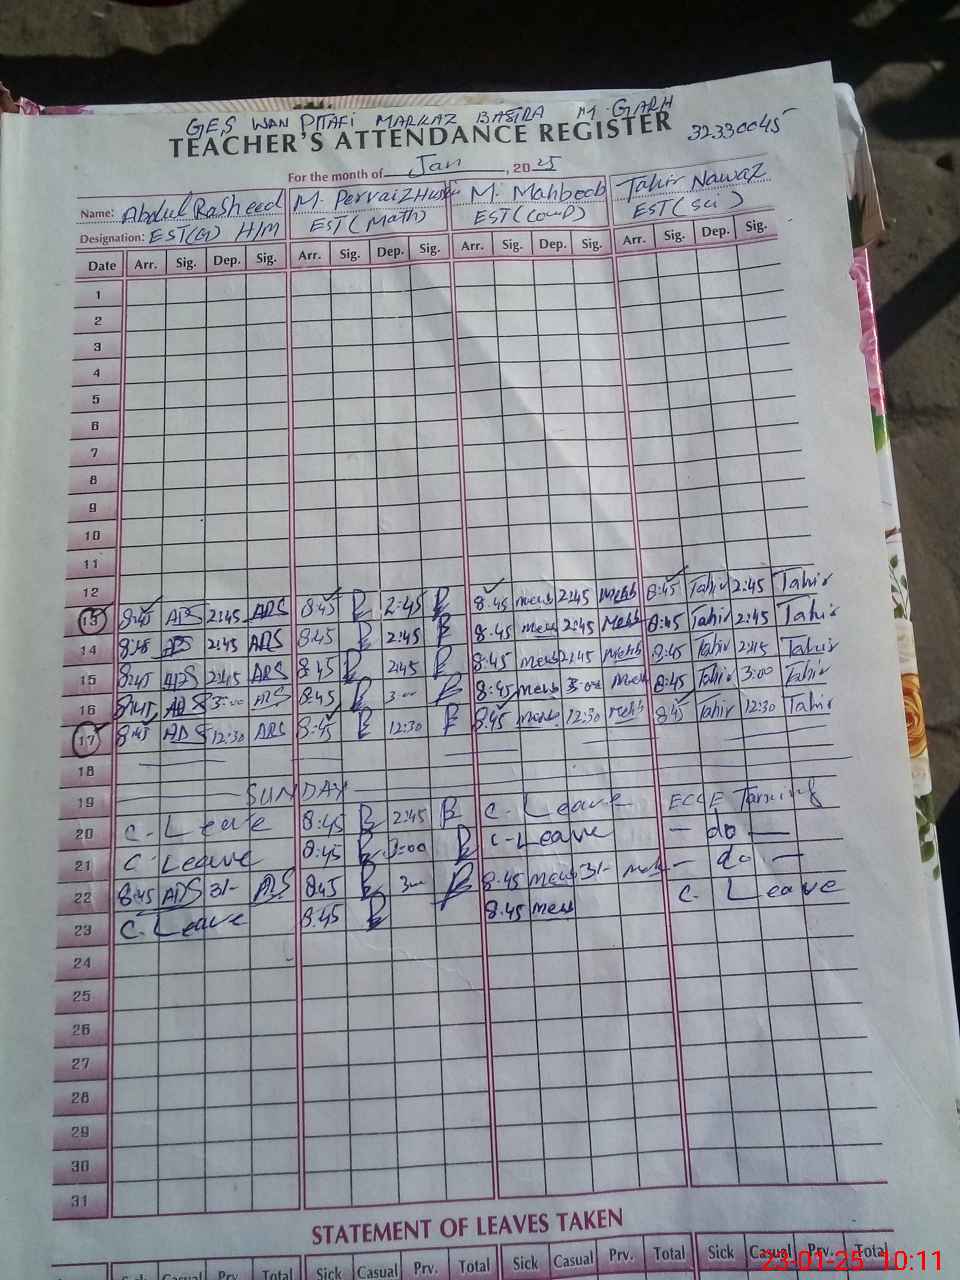 GES WAN PITAFI MARKAZ BASIRA M. GARH
TEACHER'S ATTENDANCE REGISTER 32330045
For the month of Jan, 2025
Name: Abdul Rasheed M. Pervaiz Hussain M. Mahboob Tahir Nawaz
Designation: EST(G) H/M EST (Math) EST (Comp) EST (Sci)
Date Arr. Sig. Dep. Sig. Arr. Sig. Dep. Sig. Arr. Sig. Dep. Sig. Arr. Sig. Dep. Sig.
1
2
3
4
5
6
7
8
9
10
11
12
13 8:45 ADS 2:45 ADS 8:45 2:45 8:45 2:45 8:45 Tahir 2:45 Tahir
14 8:45 ADS 2:45 ADS 8:45 2:45 8:45 2:45 8:45 Tahir 2:45 Tahir
15 8:45 ADS 2:45 ADS 8:45 2:45 8:45 2:45 8:45 Tahir 2:45 Tahir
16 8:45 ADS 3:00 ADS 8:45 3:00 8:45 3:00 8:45 Tahir 3:00 Tahir
17 8:45 ADS 12:30 ADS 8:45 12:30 8:45 12:30 8:45 Tahir 12:30 Tahir
18
19 SUNDAY
20 C-Leave 8:45 2:45 C-Leave ECCE
21 C-Leave 8:45 3:00 C-Leave - do -
22 8:45 ADS 3/- ADS 8:45 3:00 8:45 3/- - do -
23 C. Leave 8:45 8.45 C. Leave
24
25
26
27
28
29
30
31
STATEMENT OF LEAVES TAKEN
Sick Casual Prv. Total Sick Casual Prv. Total Sick Casual Prv. Total Sick Casual Prv. Total
23-01-25 10:11